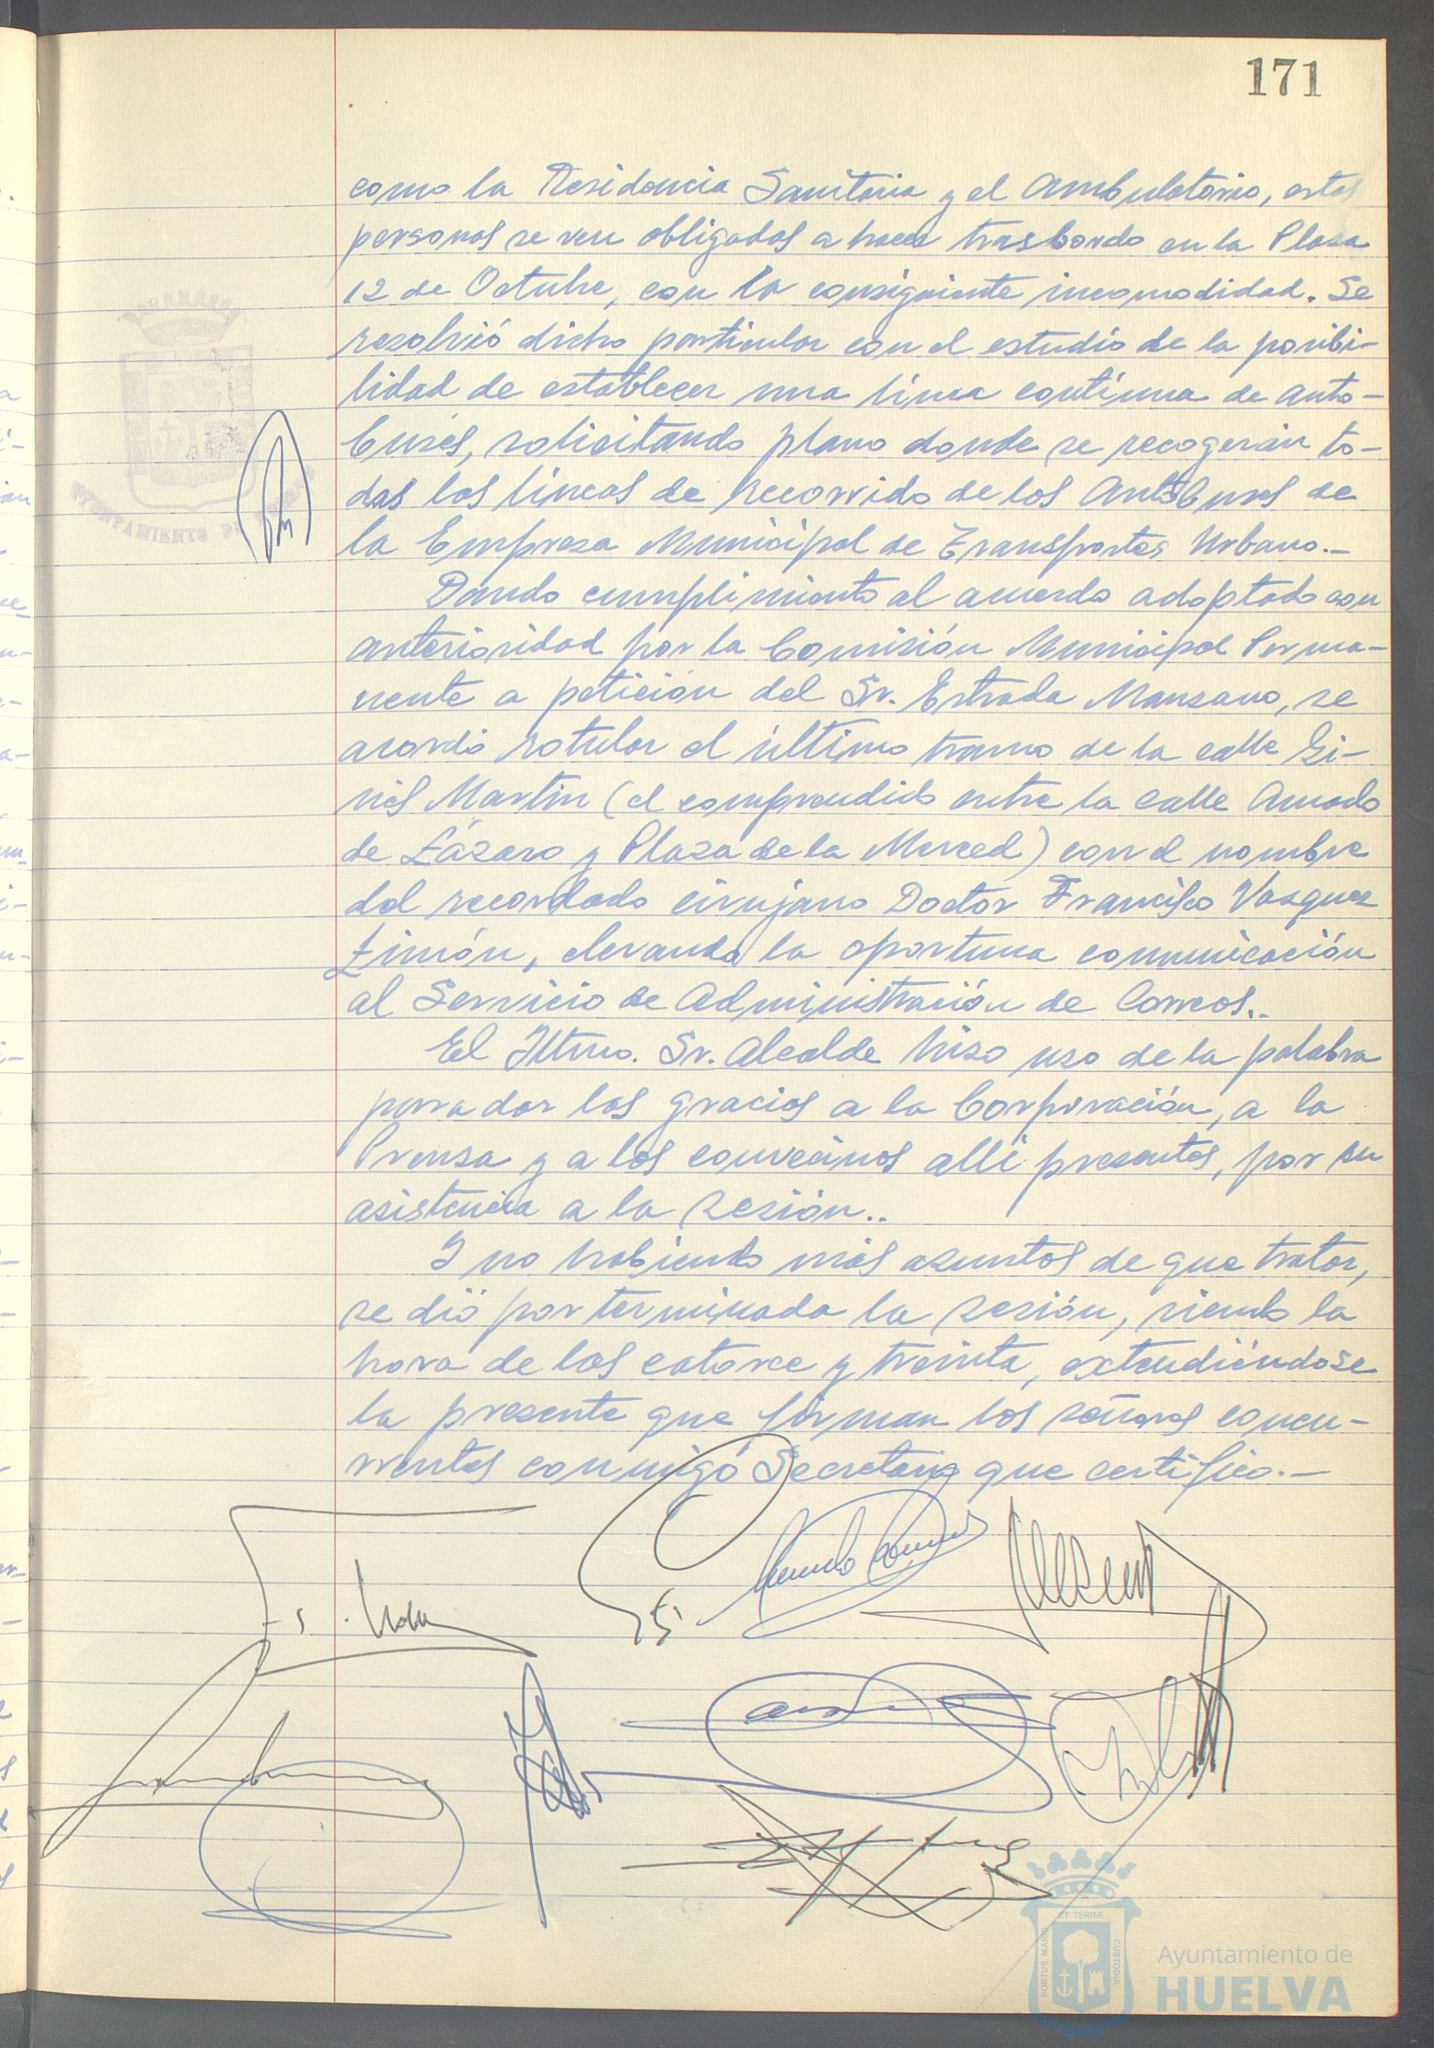 171
como la Residencia Sanitaria y el Ambulatorio, estas
personas se ven obligados a hacer trasbordo en la Plaza
12 de Octubre, con la consiguiente incomodidad. Se
resolvió dicho particular con el estudio de la posibi-
lidad de establecer una línea continua de Auto-
buses, solicitando plano donde se recogerán to-
das las líneas de recorrido de los Autobuses de
la Empresa Municipal de Transportes Urbano.-
Dando cumplimiento al acuerdo adoptado con
anterioridad por la Comisión Municipal Perma-
nente a petición del Sr. Estrada Manzano, se
acordó rotular el último tramo de la calle Gi-
nés Martín (el comprendido entre la calle Amado
de Lázaro y Plaza de la Merced) con el nombre
del recordado cirujano Doctor Francisco Vazquez
Limón, elevando la oportuna comunicación
al Servicio de Administración de Correos..
El Iltmo. Sr. Alcalde hizo uso de la palabra
para dar las gracias a la Corporación, a la
Prensa y a los convecinos allí presentes, por su
asistencia a la sesión..
Y no habiendo más asuntos de que tratar,
se dió por terminada la sesión, siendo la
hora de las catorce y treinta, extendiéndose
la presente que firman los señores concu-
rrentes conmigo Secretario que certifico.-
AYUNTAMIENTO DE HUELVA
PORTUS MARIS
ET TERRÆ
CUSTODIA
Ayuntamiento de
HUELVA